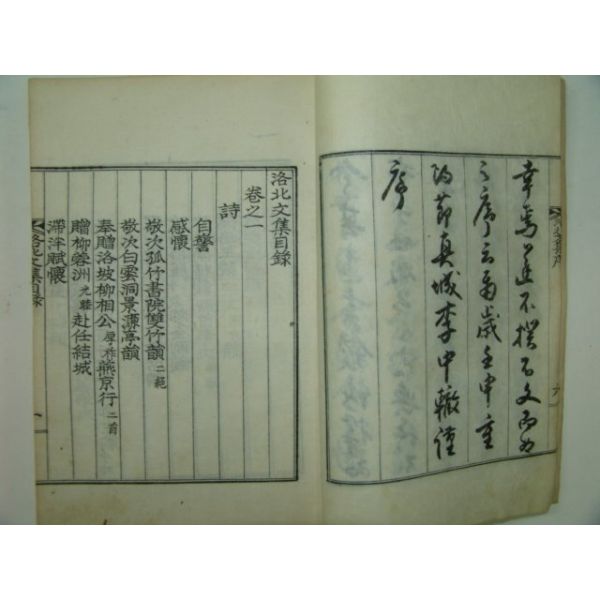 幸焉遂不揆不文而為
之序云爾歲壬申重
陽節真城李中轍謹
序
洛北文集目錄
卷之一
詩
自警
感懷
敬次孤竹書院雙竹韻二絕
敬次白雲洞景濂亭韻
奉贈洛坡柳相公厚祚燕京行二首
贈柳蓉洲元睦赴任結城
滯泮賦懷
洛北文集目錄
一